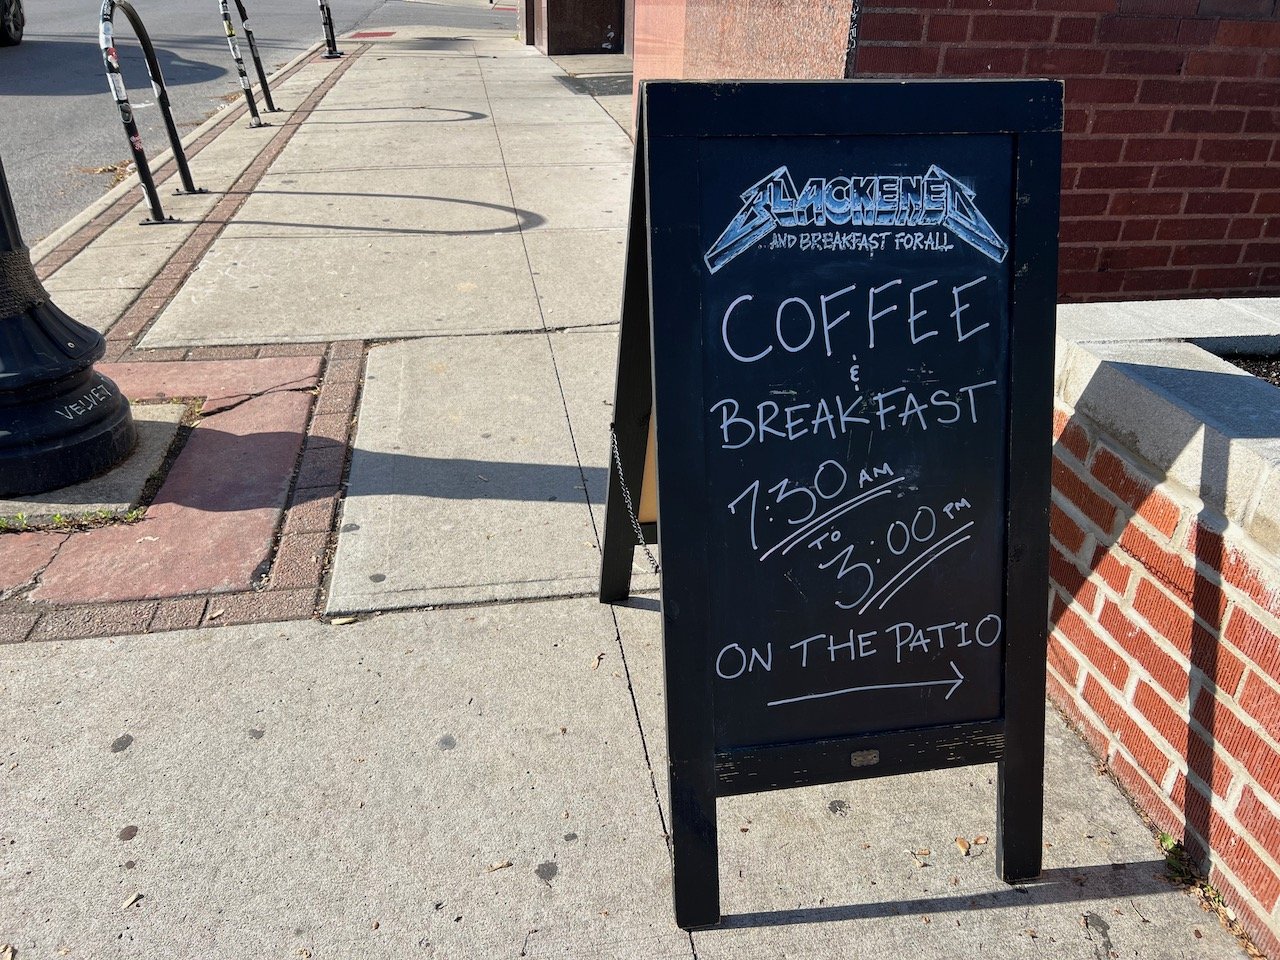 BLACKENED
...AND BREAKFAST FOR ALL
COFFEE
&
BREAKFAST
7:30 AM
TO
3:00 PM
ON THE PATIO
VELVET